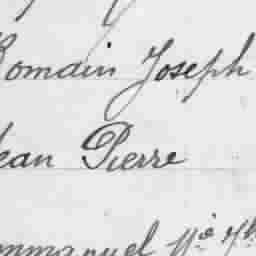 Romain Joseph
Jean Pierre
Emmanuel